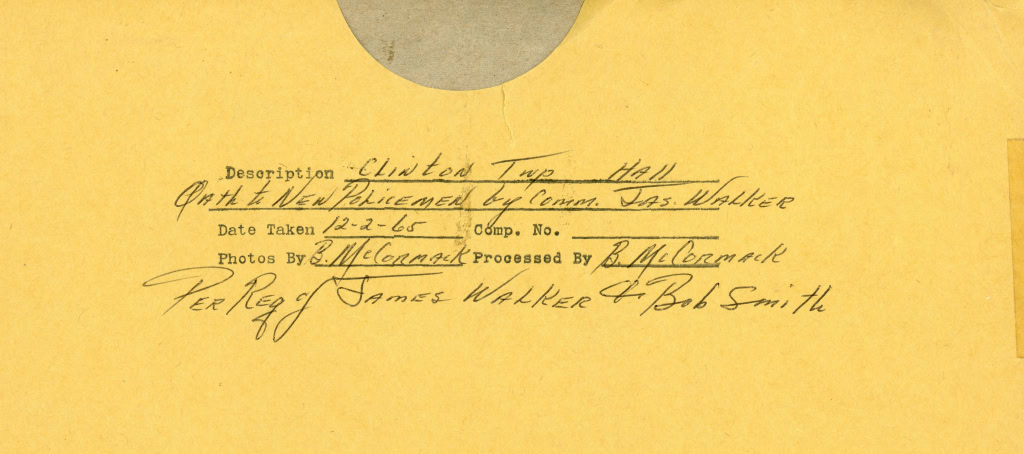 Description Clinton Twp Hall
Oath to New Policemen by Comm. Jas. Walker
Date Taken 12-2-65 Comp. No.
Photos By B. McCormack Processed By B. McCormack
Per Req of James Walker & Bob Smith